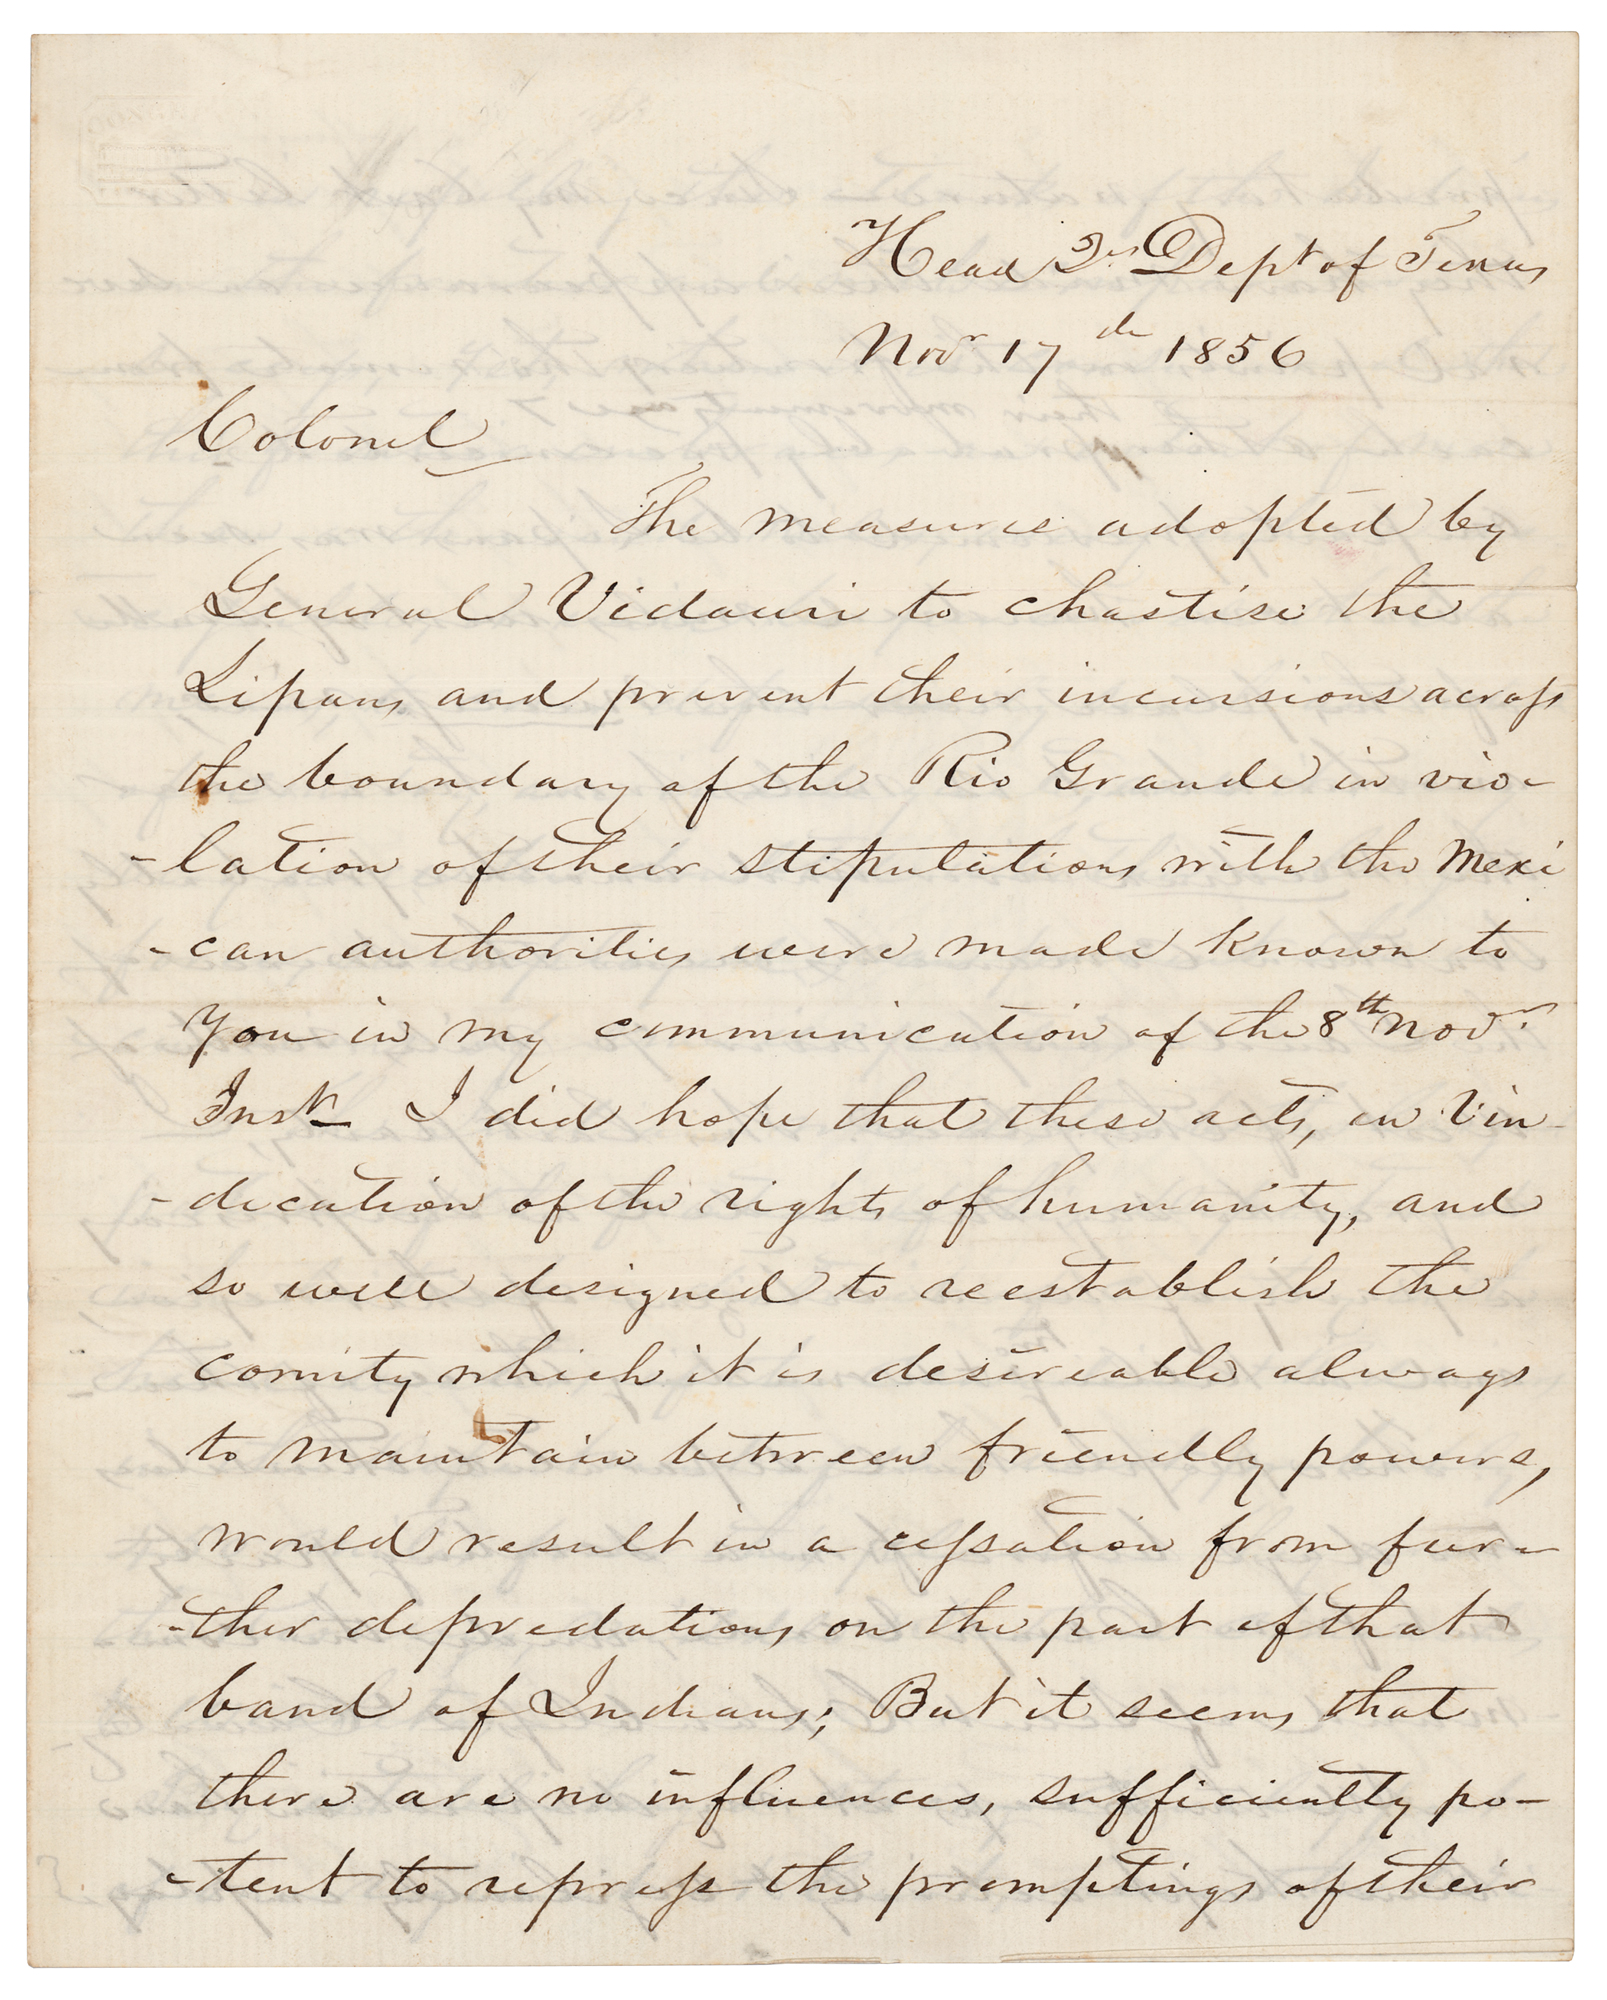 Head Qrs Dept of Texas
Novr 17th 1856
Colonel
The measures adopted by
General Vidauri to chastise the
Lipans and prevent their incursions across
the boundary of the Rio Grande in vio-
-lation of their stipulations with the Mexi
-can authorities were made known to
you in my communication of the 8th Novr.
Inst. I did hope that these acts, in vin-
-dication of the rights of humanity, and
so well designed to reestablish the
comity which it is desireable always
to maintain between friendly powers,
would result in a cessation from fur-
-ther depredations on the part of that
band of Indians; But it seems that
there are no influences, sufficiently po-
-tent to repress the promptings of their